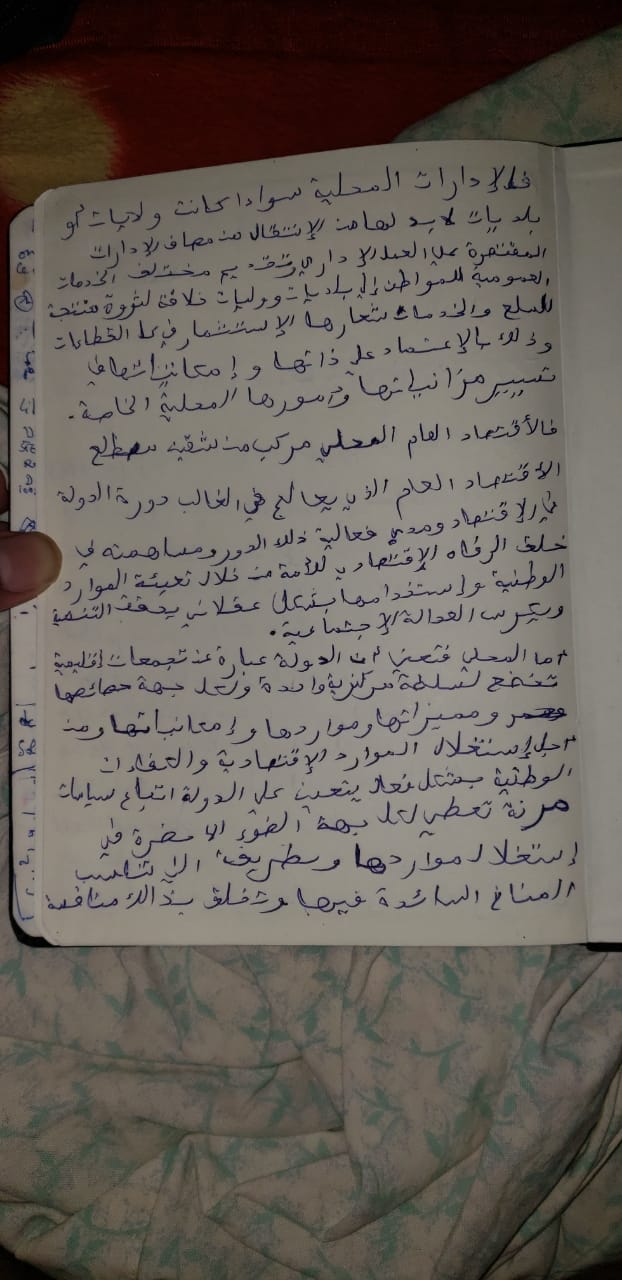 فالإدارات المحلية سواءا كانت ولايات أو
بلديات لابد لها من الإنتقال من مصاف الإدارات
المقتصرة على العمل الإداري وتقديم مختلف الخدمات
العمومية للمواطن إلى بلديات وولايات خلاقة لثروة منتجة
للسلع والخدمات شعارها الإستثمار في كل القطاعات
وذلك بالإعتماد على ذاتها وإمكانياتها في
تسيير ميزانياتها وأمورها المحلية الخاصة.
فالأقتصاد العام المحلي مركب من شقين مصطلح
الاقتصاد العام الذي يعالج في الغالب دورة الدولة
في الإقتصاد ومدى فعالية ذلك الدور ومساهمته في
خلق الرفاه الإقتصادي للأمة من خلال تعبئة الموارد
الوطنية وإستخدامها بشكل عقلاني يحقق التنمية
ويكرس العدالة الإجتماعية.
أما المحلي فتعني أن الدولة عبارة عن تجمعات إقليمية
تخضع لسلطة مركزية واحدة ولكل جهة خصائصها
ومميزاتها ومواردها وإمكانياتها ومن
أجل إستغلال الموارد الإقتصادية والقدرات
الوطنية بشكل فعال يتعين على الدولة اتباع سياسات
مرنة تعطي لكل جهة الضوء الأخضر في
إستغلال مواردها وبطريقة التي تناسب
المناخ السائدة فيها وتخلق بذالك منافسة